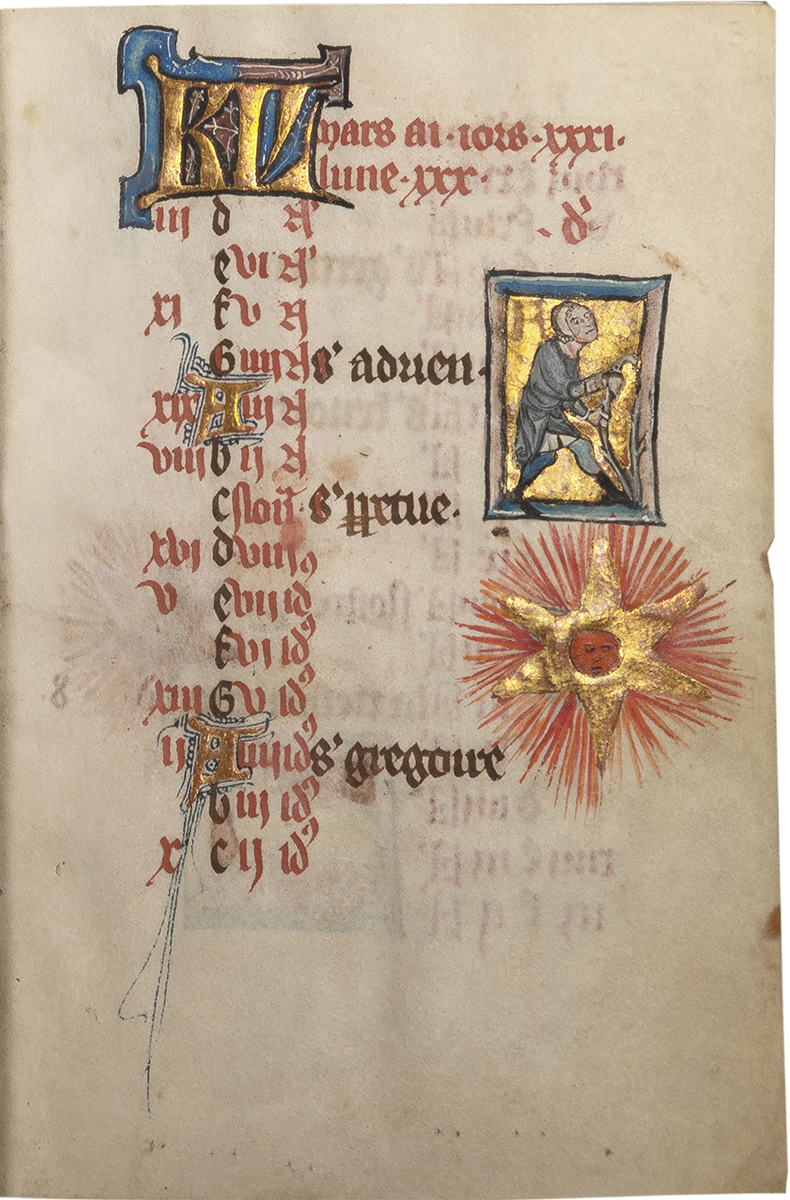 KL mars ai · iors · xxxi ·
lune · xxx ·
iii d N
e vi N
xi f v N
G iiii N s' adrien ·
xix A iii N
viii b ii N
c
xvi d viii
v e vii id'
f vi id'
xiii G v id'
ii A iiii id' s' gregoire
b iii id'
x c ii id'
8